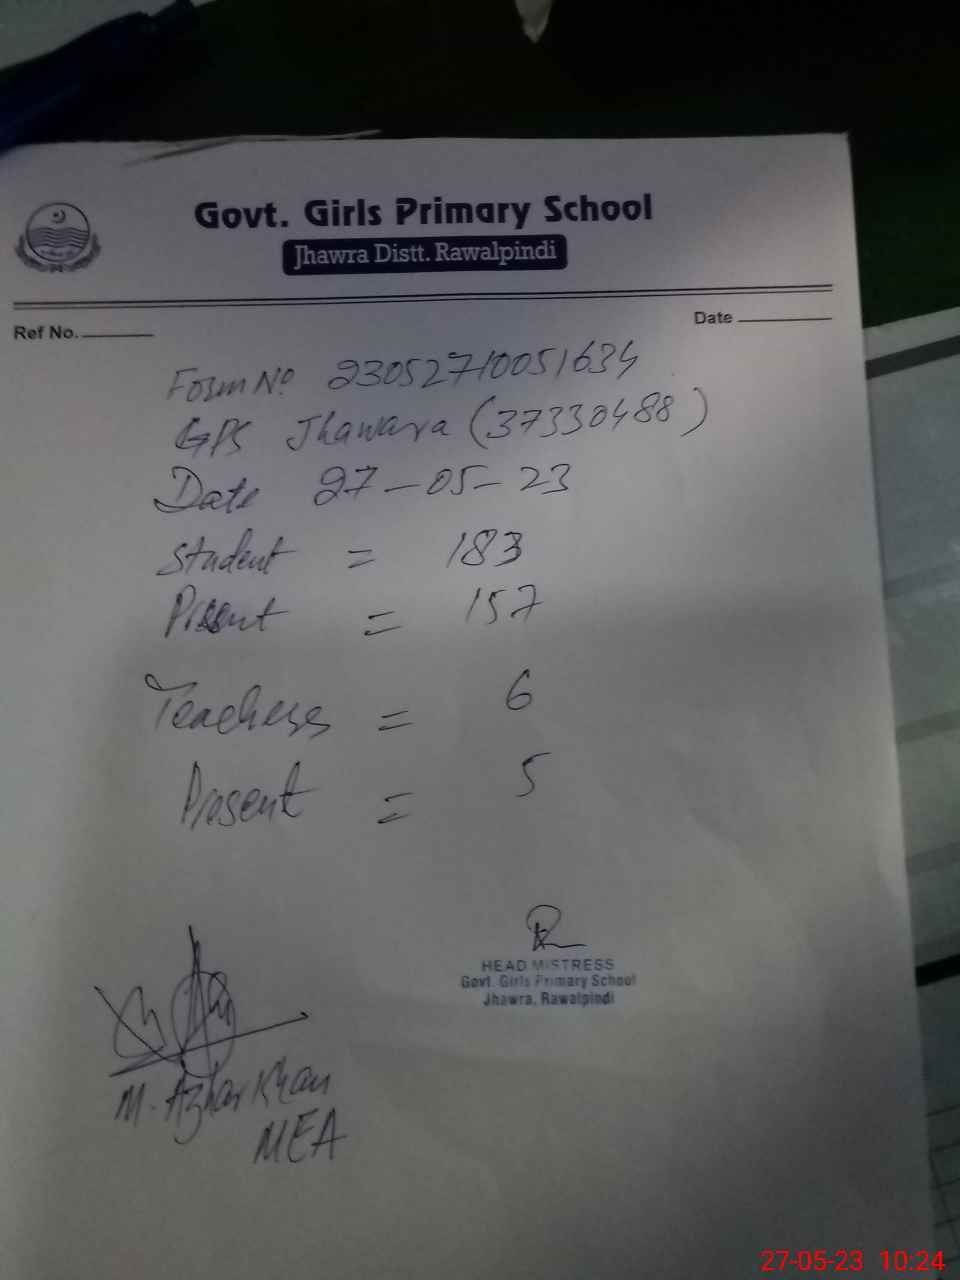 Govt. Girls Primary School
Jhawra Distt. Rawalpindi
Ref No.
Date
Form No 23052710051634
GPS Jhawara (37330488)
Date 27-05-23
Student = 183
Present = 157
Teachers = 6
Present = 5
HEAD MISTRESS
Govt. Girls Primary School
Jhawra, Rawalpindi
M. Azhar Khan
MEA
27-05-23 10:24